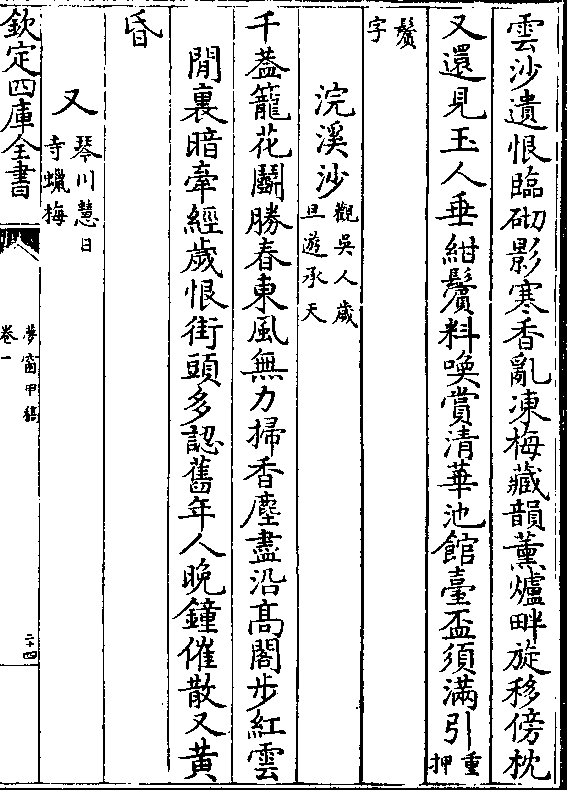 雲沙遺恨臨砌影寒香亂凍梅藏韻薰爐畔旋移傍枕
又還見玉人垂紺鬒料喚賞清華池館臺盃須滿引重押
鬒字
浣溪沙觀吳人歲旦遊承天
千蓋籠花鬭勝春東風無力掃香塵盡沿髙閣步紅雲
閒裏暗牽經歲恨街頭多認舊年人晚鐘催散又黄
昏
又琴川慧日寺蠟梅
欽定四庫全書
夢窗甲稿
卷一
二十四